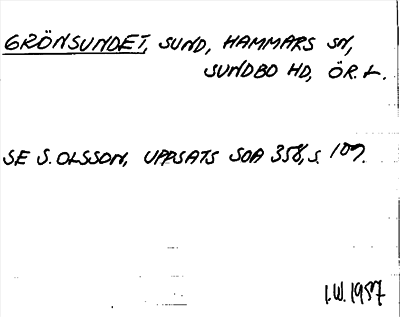 GRÖNSUNDET, SUND, HAMMARS SN,
SUNDBO HD, ÖR. L.
SE S. OLSSON, UPPSATS SOA 358, S. 109.
I.W. 1987